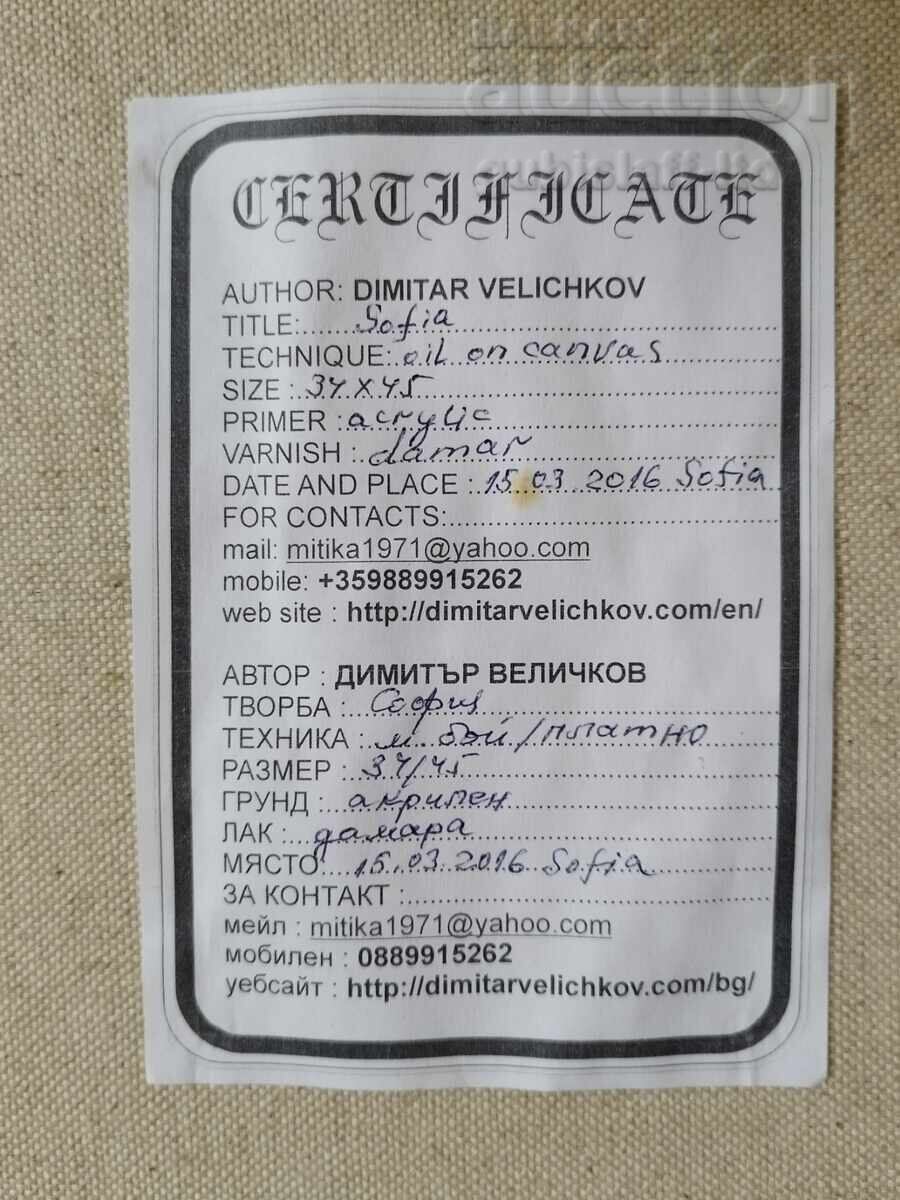 BALKAN
auction
CERTIFICATE
AUTHOR: DIMITAR VELICHKOV
TITLE:......Sofia
TECHNIQUE: oil on canvas
SIZE : 34 x 45
PRIMER : acrylic
VARNISH : damar
DATE AND PLACE : 15.03.2016 Sofia
FOR CONTACTS:
mail: mitika1971@yahoo.com
mobile: +359889915262
web site : http://dimitarvelichkov.com/en/
АВТОР : ДИМИТЪР ВЕЛИЧКОВ
ТВОРБА : София
ТЕХНИКА : м. бои / платно
РАЗМЕР : 34/45
ГРУНД : акрилен
ЛАК : дамара
МЯСТО 15.03.2016 Sofia
ЗА КОНТАКТ :
мейл : mitika1971@yahoo.com
мобилен : 0889915262
уебсайт : http://dimitarvelichkov.com/bg/